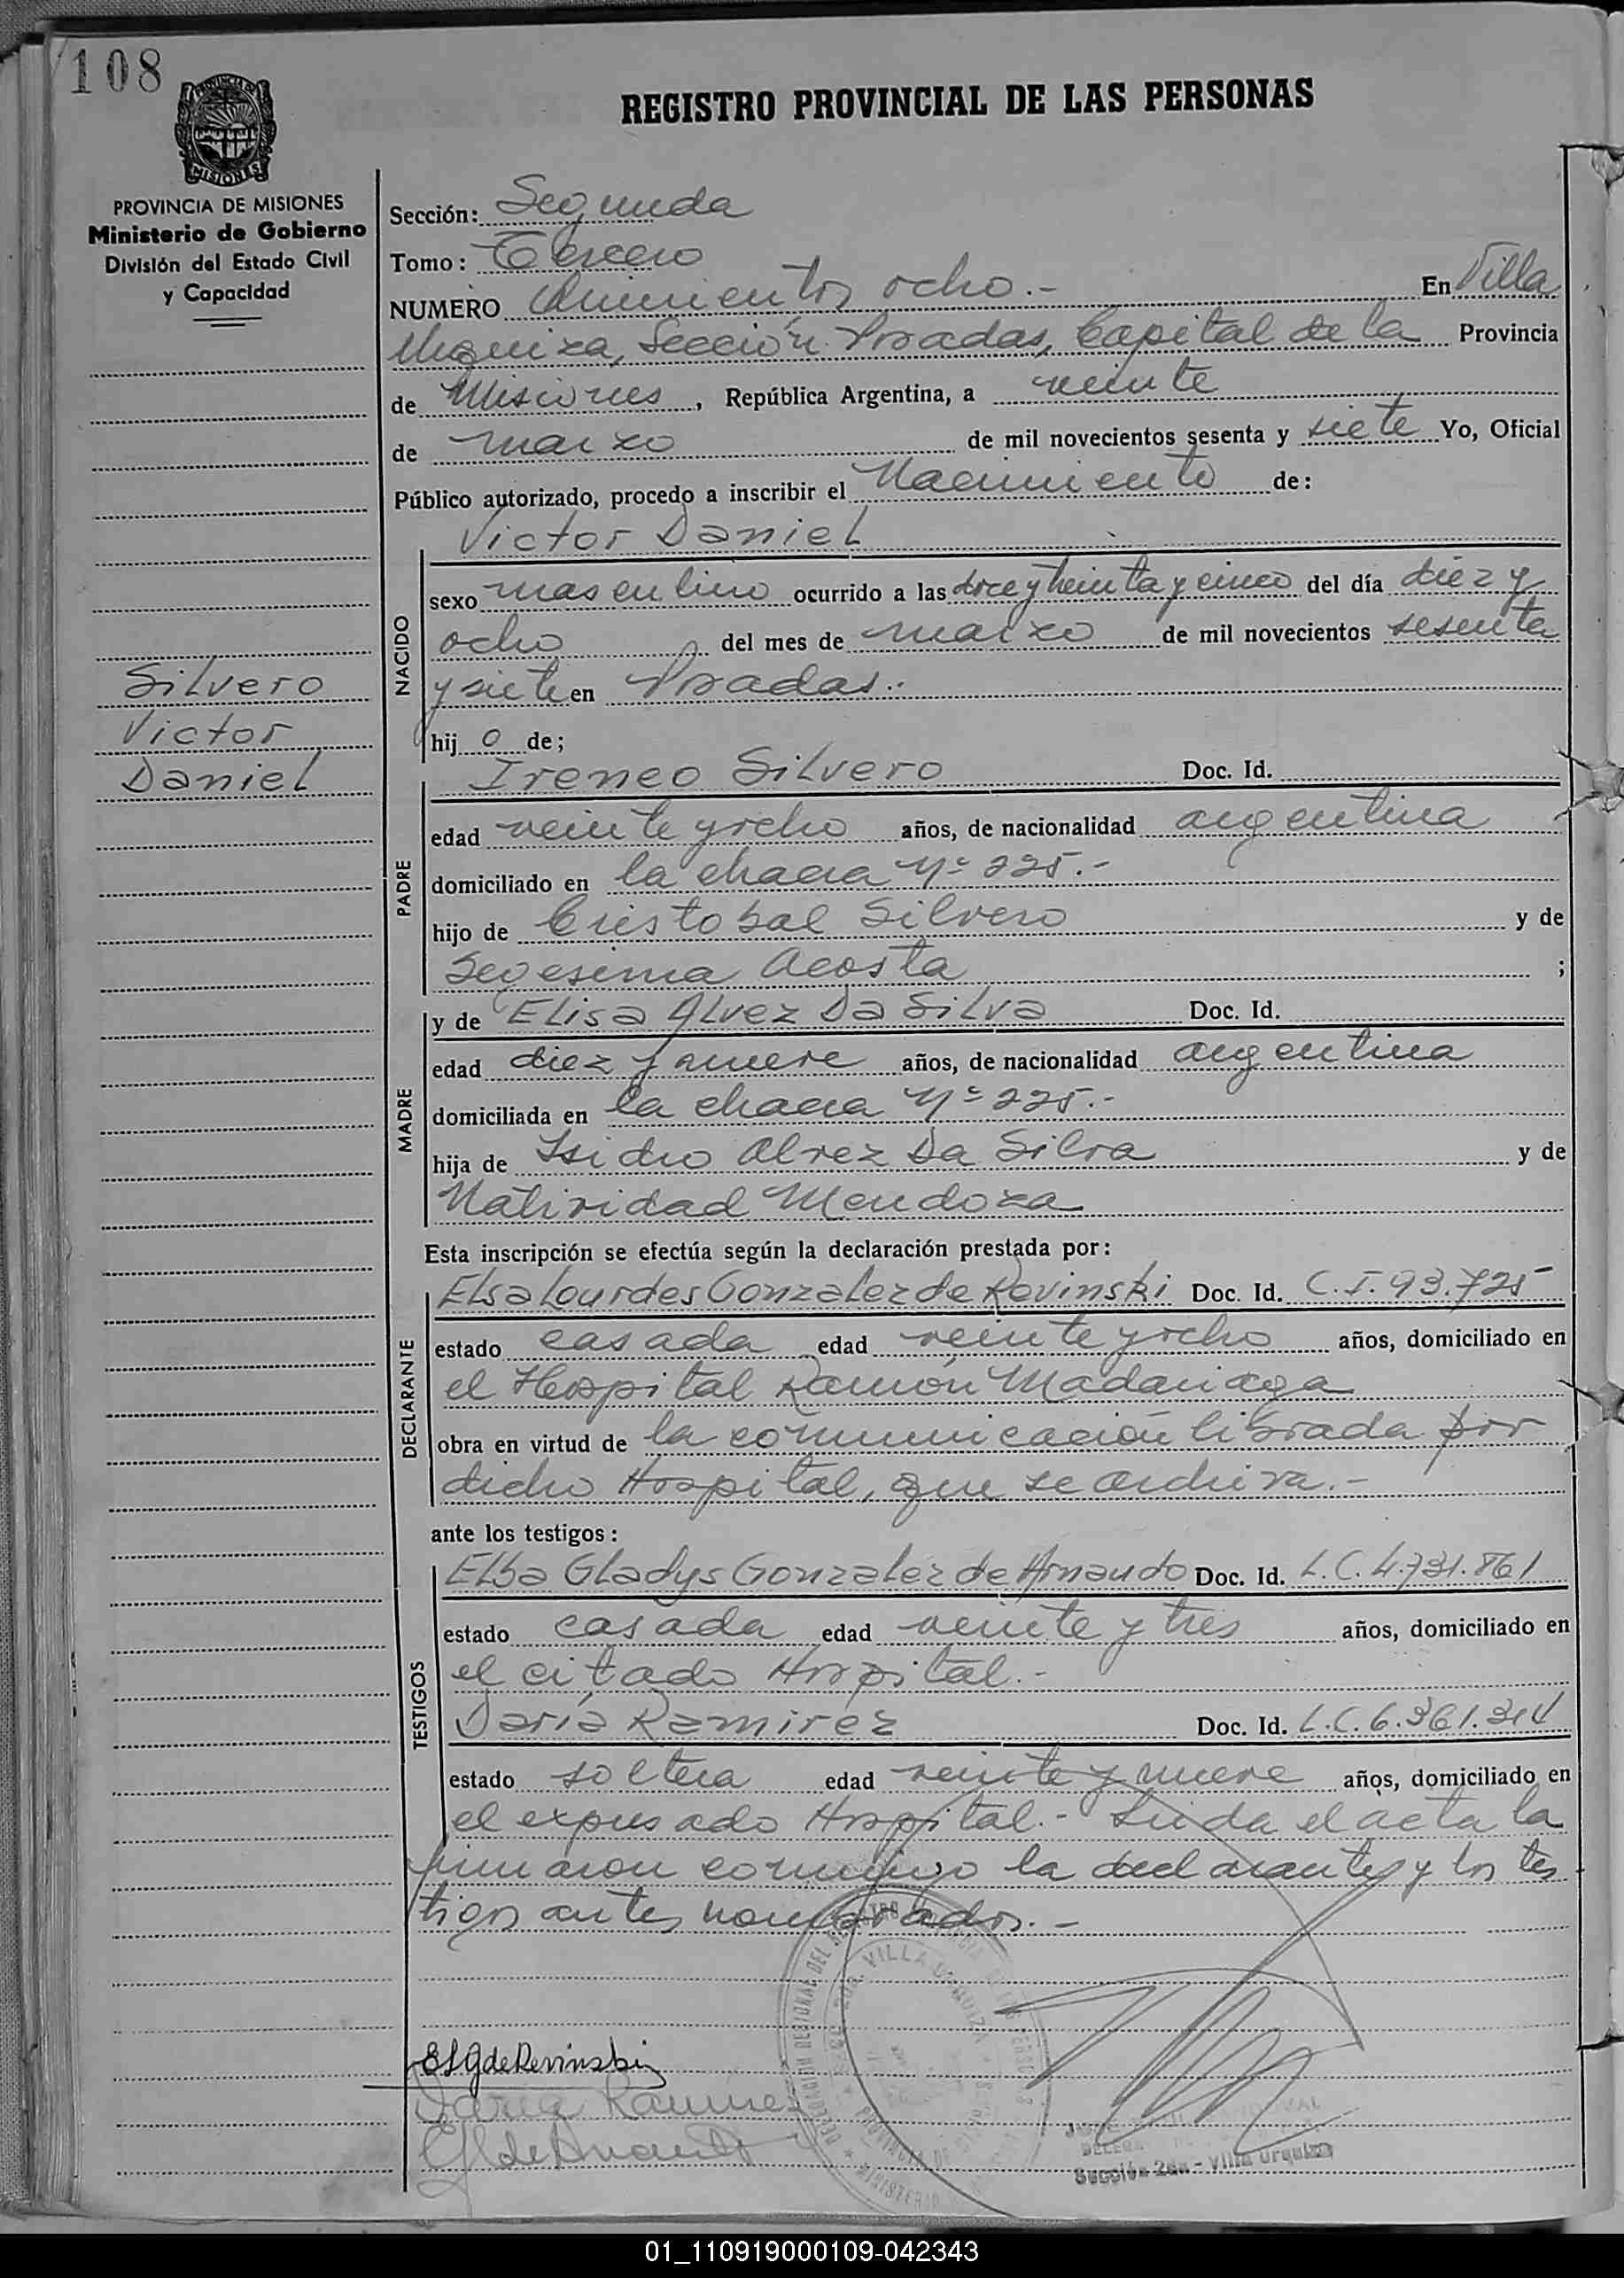 108
REGISTRO PROVINCIAL DE LAS PERSONAS
PROVINCIA DE
MISIONES
PROVINCIA DE MISIONES
Ministerio de Gobierno
División del Estado Civil
y Capacidad
Sección: Segunda
Tomo: Tercero
NUMERO Quinientos ocho.- En Villa
Urquiza, Sección Posadas, Capital de la Provincia
de Misiones, República Argentina, a veinte
de marzo de mil novecientos sesenta y siete Yo, Oficial
Público autorizado, procedo a inscribir el Nacimiento de:
Victor Daniel
NACIDO
sexo masculino ocurrido a las doce y treinta y cinco del día diez y
ocho del mes de marzo de mil novecientos sesenta
y siete en Posadas.-
hij o de;
Silvero
Victor
Daniel
PADRE
Ireneo Silvero Doc. Id.
edad veinte y ocho años, de nacionalidad argentina
domiciliado en la chacra Nº 225.-
hijo de Cristobal Silvero y de
Acosta ;
MADRE
y de Elisa Alvez Da Silva Doc. Id.
edad diez y nueve años, de nacionalidad argentina
domiciliada en la chacra Nº 225.-
hija de Isidro Alvez Da Silva y de
Natividad Mendoza
Esta inscripción se efectúa según la declaración prestada por:
DECLARANTE
Elsa Lourdes Gonzalez de Revinski Doc. Id. C.I. 93.725
estado casada edad veinte y ocho años, domiciliado en
el Hospital Ramón Madariaga
obra en virtud de la comunicación librada por
dicho Hospital, que se archiva.-
ante los testigos:
TESTIGOS
Elba Gladys Gonzalez de Doc. Id. L.C. 4.731.861
estado casada edad veinte y tres años, domiciliado en
el citado Hospital.-
Daria Ramirez Doc. Id. L.C. 6.361.314
estado soltera edad veinte y nueve años, domiciliado en
el expresado Hospital.- Leida el acta la
firmaron conmigo la declarante y los tes
tigos antes nombrados.-
E L G de Revinski
Daria Ramirez
VILLA URQUIZA
Sección 2da - Villa Urquiza
01_110919000109-042343